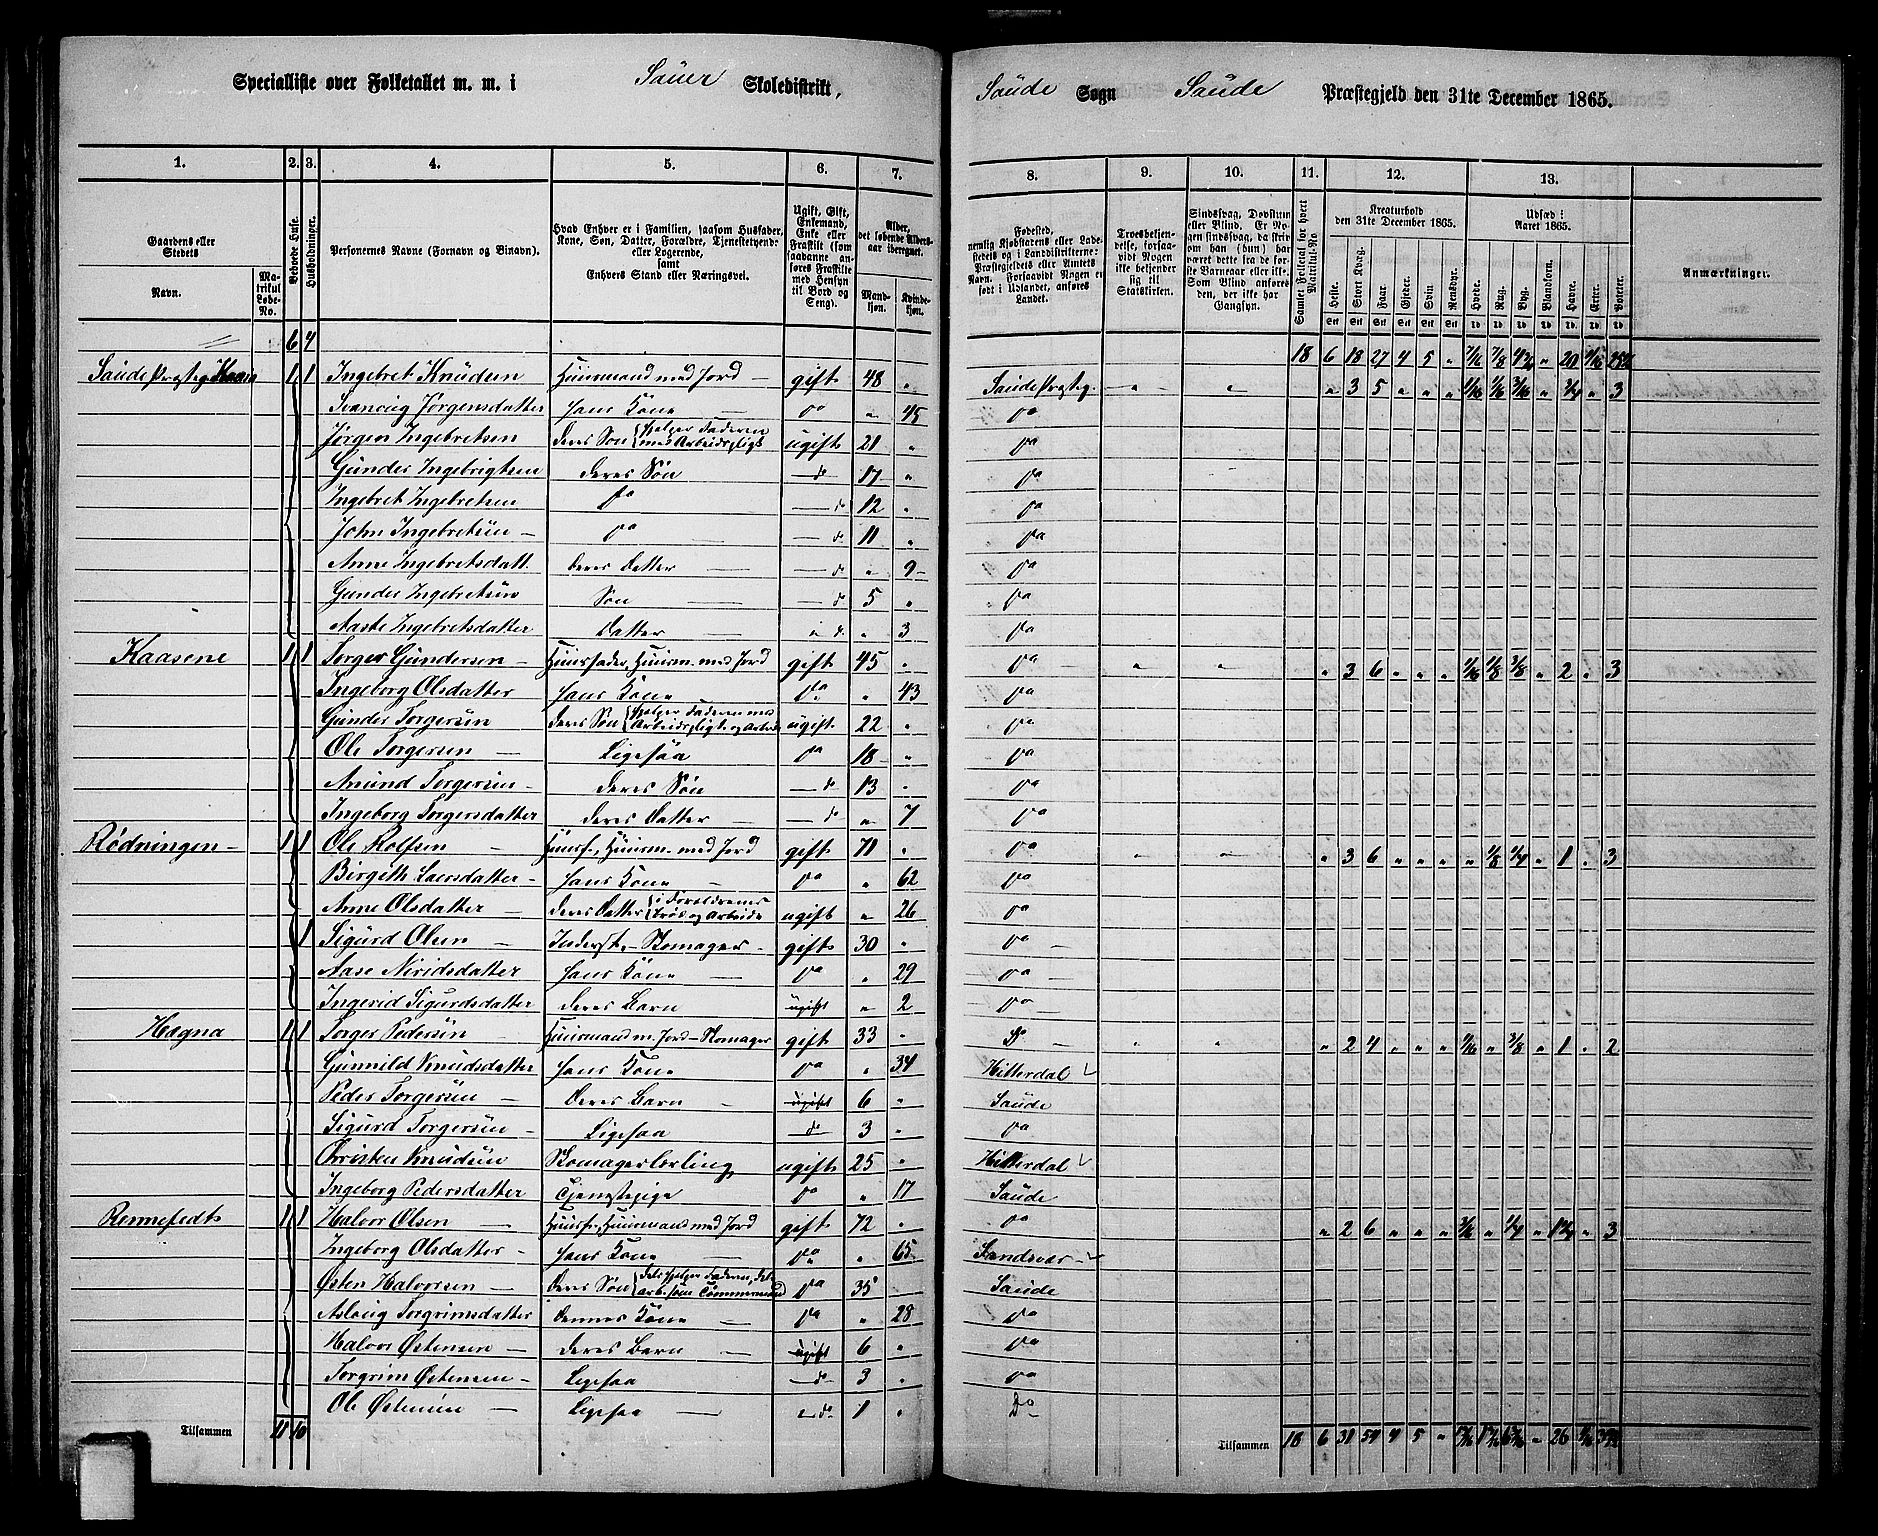 Specialliste over Folketallet m. m. i Sauer Skoledistrikt, Saude Sogn Saude Præstegjeld den 31te December 1865.
1. 2. 3. 4. 5. 6. 7. 8. 9. 10. 11. 12. 13.
Gaardens eller Stedets Navn. Matrikul Løbe-No. Beboede Huse. Husholdninger. Personernes Navne (Fornavn og Binavn). Hvad Enhver er i Familien, saasom Husfader, Kone, Søn, Datter, Forældre, Tjenestetyende eller Logerende, samt Enhvers Stand eller Næringsvei. Ugift, Gift, Enkemand, Enke eller Fraskilt (som saadanne anføres Fraskilte med Hensyn til Bord og Seng). Alder, det løbende Aldersaar iberegnet. Mandkjøn. Kvindekjøn.
Fødested, nemlig Kjøbstadens eller Ladestedets og i Landdistrikterne: Præstegjeldets eller Amtets Navn. Forsaavidt Nogen er født i Udlandet, anføres Landet. Troesbekjendelse, forsaavidt Nogen ikke bekjender sig til Statskirken. Sindssvag, Døvstum eller Blind. Er Nogen sindssvag, da skrives om han (hun) har været dette fra de første Barneaar eller ikke. Som Blind anføres den, der ikke har Gangsyn. Samlet Folketal for hvert Matrikul-No. Kreaturhold den 31te December 1865. Heste. Stort Kvæg. Faar. Gjeder. Svin. Rensdyr. Udsæd i Aaret 1865. Hvede. Rug. Byg. Blandkorn. Havre. Erter. Poteter. Anmærkninger.
6 4 18 6 18 27 4 5 „ 20
Saude Præsteg. 1 1 Ingebret Knudsen Huusmand med Jord gift 48 „ Saude Præsteg. „ „ „ 3 5 „ „ „ 1/16 1/16 3/16 „ 3/4 „ 3
Svanoug Jørgensdatter Hans Kone Do „ 45 Do
Jørgen Ingebretsen deres Søn hjelper Faderen med Arbeids ugift 21 „ Do
Gunder Ingebrigtsen deres Søn do 17 „ Do
Ingebret Ingebretsen Do do 12 „ Do
John Ingebretsen Do do 11 „ Do
Anne Ingebretsdatt. deres Datter do „ 9 Do
Gunder Ingebretsen Søn do 5 „ Do
Aaste Ingebretsdatter Datter do „ 3 Do
Kaasene 1 1 Torger Gundersen Huusfader, Huusm. med Jord gift 45 „ Do „ „ „ 3 6 „ „ „ 1/16 1/8 3/8 „ 2 „ 3
Ingeborg Olsdatter Hans Kone Do „ 43 Do
Gunder Torgersen deres Søn hjelper Faderen med ugift 22 „ Do
Ole Torgersen Ligesaa Do 18 „ Do
Amund Torgersen deres Søn do 13 „ Do
Ingeborg Torgersdatter deres Datter do „ 7 Do
Rødningen 1 1 Ole Rolfsen Huusf., Huusm. med Jord gift 71 „ Do „ „ „ 3 6 „ „ „ „ 1/8 1/4 „ 1 „ 3
Birgith Larsdatter Hans Kone Do „ 62 Do
Anne Olsdatter deres Datter i Forældrenes Brød og Arbeide ugift „ 26 Do
1 Sigurd Olsen Inderst, Skomager gift 30 „ Do
Aase Niridsdatter Hans Kone Do „ 29 Do
Ingerid Sigurdsdatter deres Barn ugift „ 2 Do
Hægna 1 1 Torger Pedersen Huusmand m. Jord Skomager gift 33 „ Do „ „ „ 2 4 „ „ „ „ 3/8 „ 1 „ 2
Gunnild Knudsdatter Hans Kone Do „ 34 Hitterdal
Peder Torgersen Deres Barn ugift 6 „ Saude
Sigurd Torgersen Ligesaa do 3 „ Do
Christen Knudsen Skomagerlærling ugift 25 „ Hitterdal
Ingeborg Pedersdatter Tjenestepige Do „ 17 Saude
Rennefedt 1 1 Halvor Olsen Huusf., Huusmand med Jord gift 72 „ Do „ 2 6 „ „ „ „ 1/4 „ „ 3
Ingeborg Olsdatter Hans Kone Do „ 65 Sandsvær
Østen Halvorsen Deres Søn Do 35 Saude
Aslaug Torgrimsdatter Dennes Kone Do „ 28 Do
Halvor Østensen deres Barn ugift 6 „ Do
Torgrim Østensen Ligesaa do 3 Do
Ole Østensen Ligesaa do 1 „ Do
Tilsammen 11 10 Tilsammen 18 6 31 54 4 5 „ 26